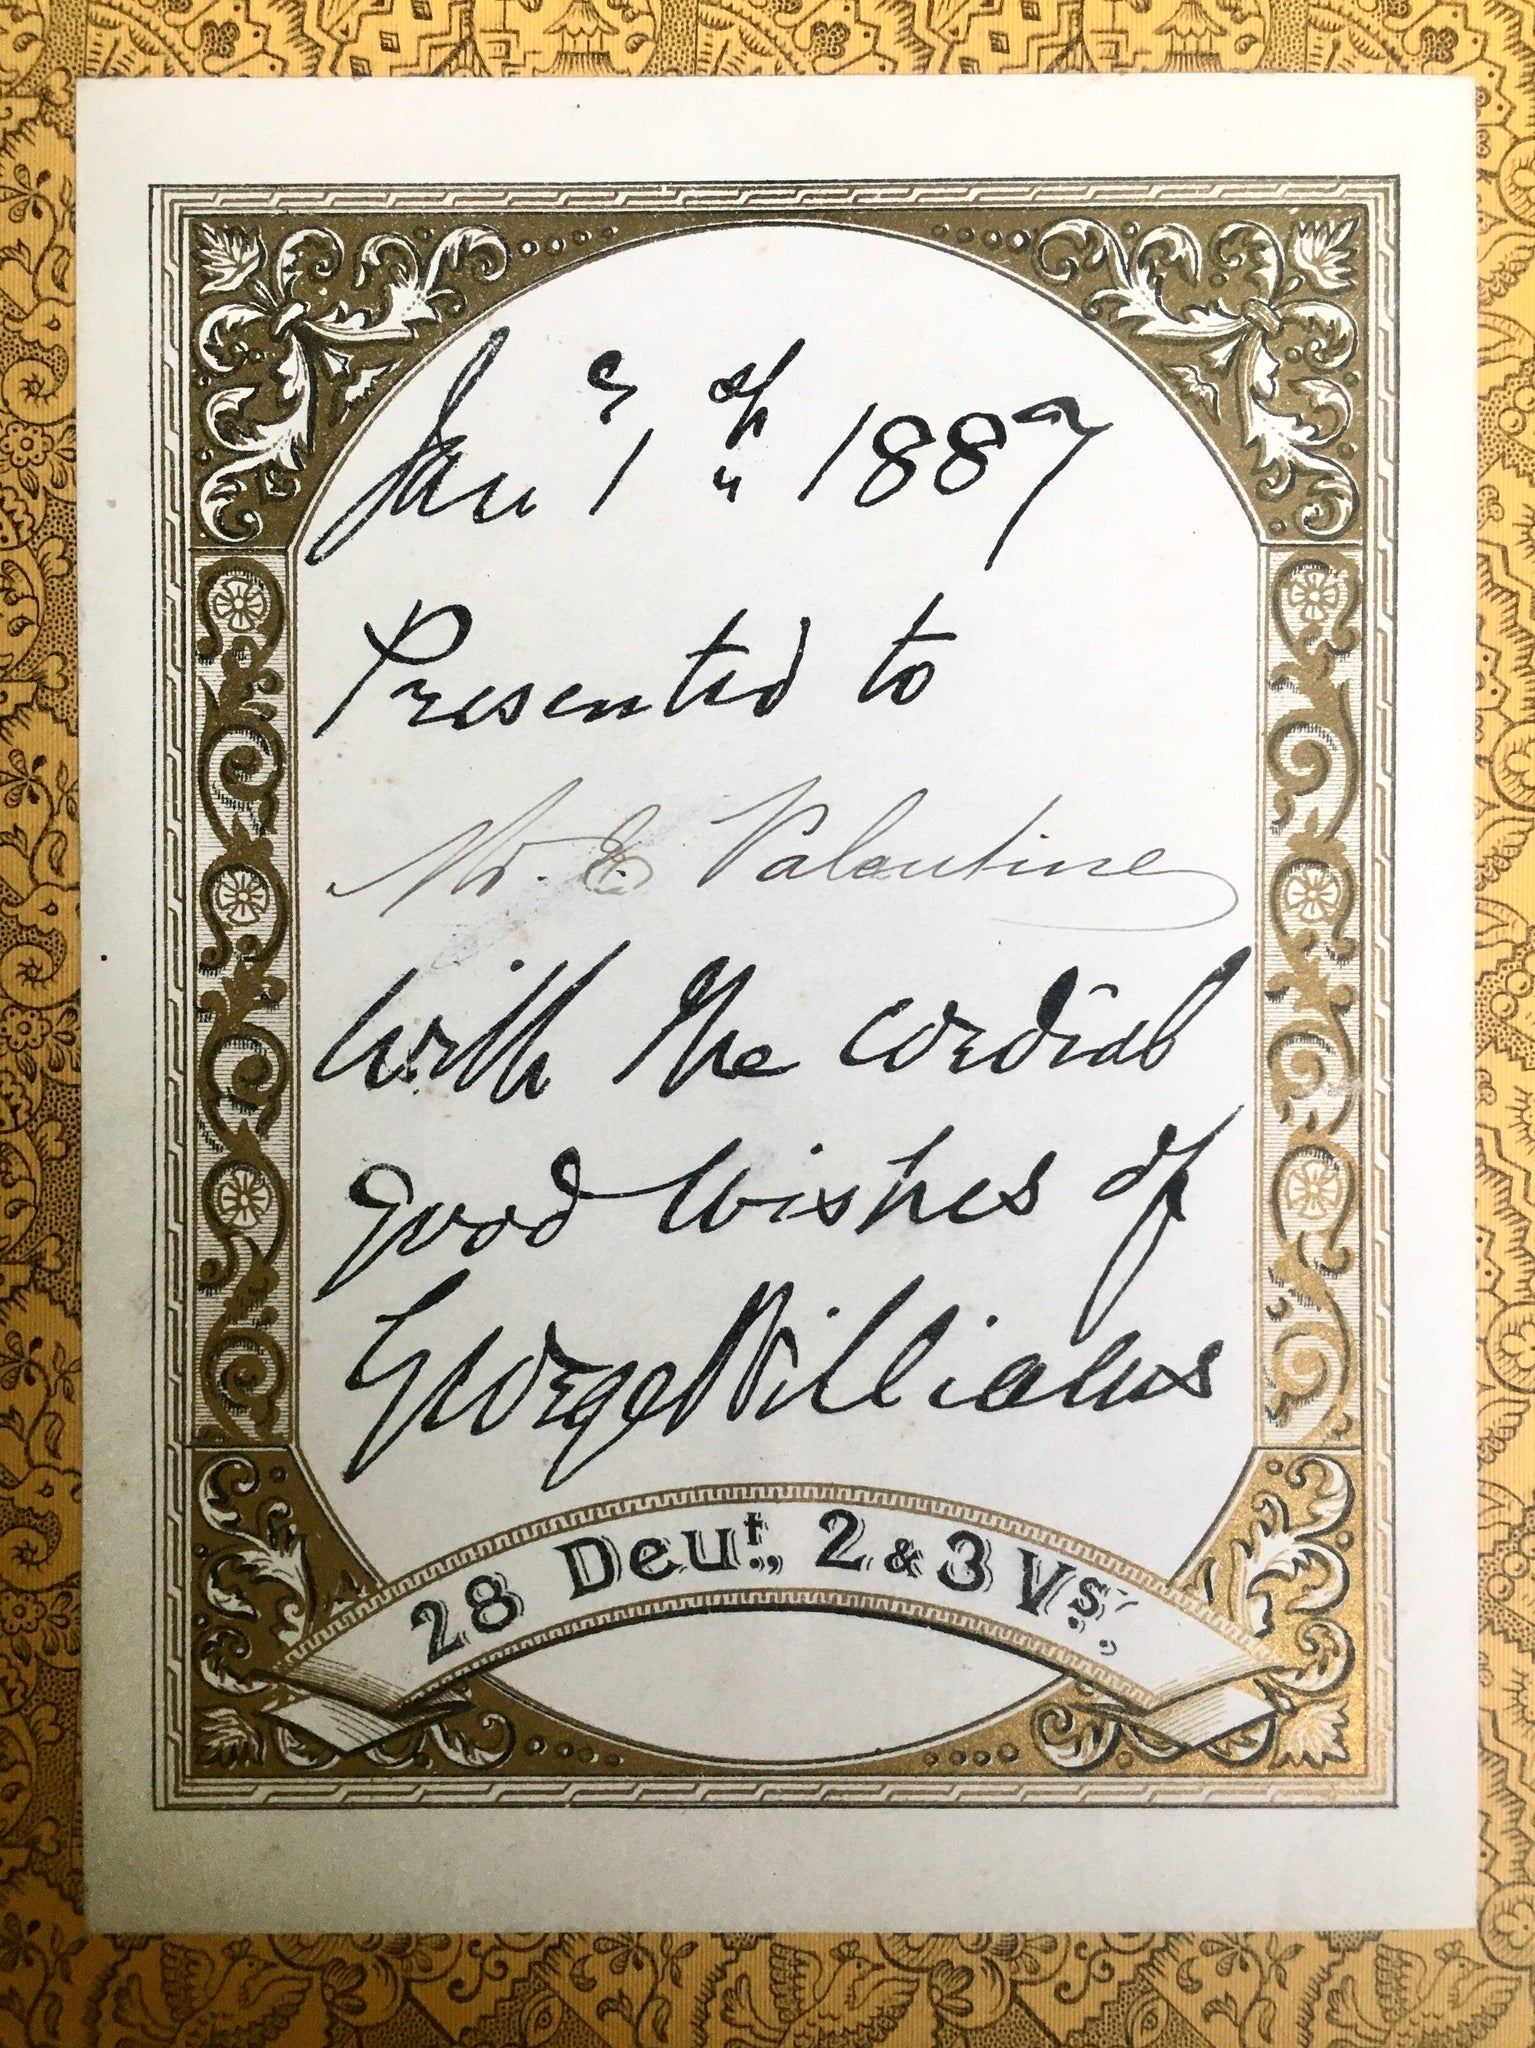 Jany 1st 1887
Presented to
Mr. E. Valentine
With the cordial
good wishes of
George Williams
28 Deut., 2 & 3 Vs.